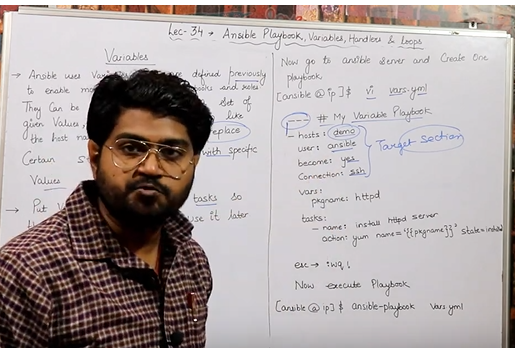 Lec-34 → Ansible Playbook, Variables, Handlers & Loops
Variables
→ Ansible uses defined previously
to enable more and roles
They Can be set of
given Values, like
the host na replace
Certain with specific
Values
→ Put tasks so
use it later
Now go to ansible server and Create One
playbook
[ansible @ ip] $ vi vars.yml
--- # My Variable Playbook
- hosts: demo
user: ansible
become: yes
Connection: ssh
Target section
vars:
pkgname: httpd
tasks:
- name: install httpd server
action: yum name='{{pkgname}}' state=install
esc → :wq!
Now execute Playbook
[ansible @ ip] $ ansible-playbook vars.yml